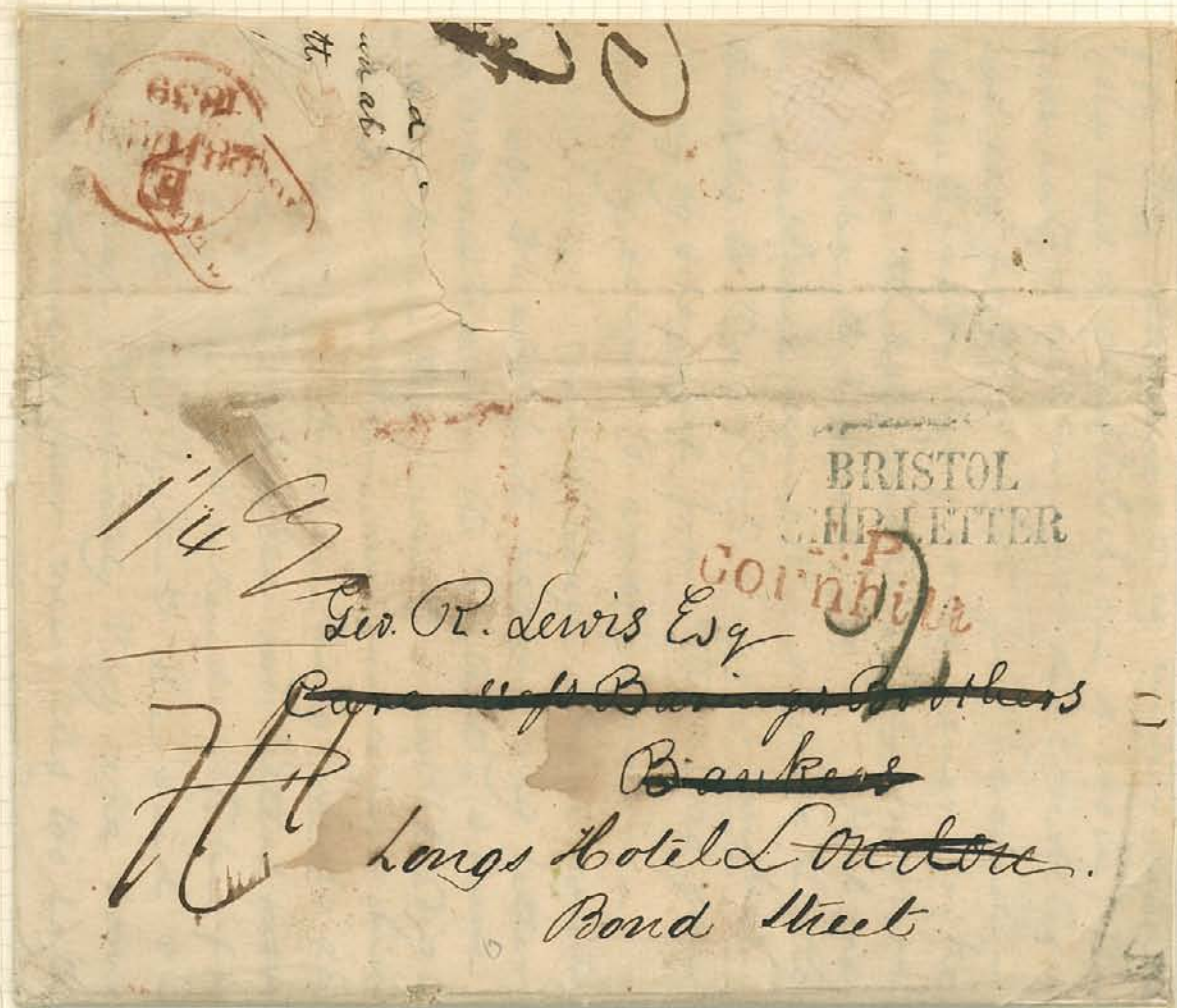 1839
BRISTOL
SHIP LETTER
T.P
Cornhill
1/4
2
Geo. R. Lewis Esq
Care of Barings Brothers
Bankers
Longs Hotel London.
Bond Street